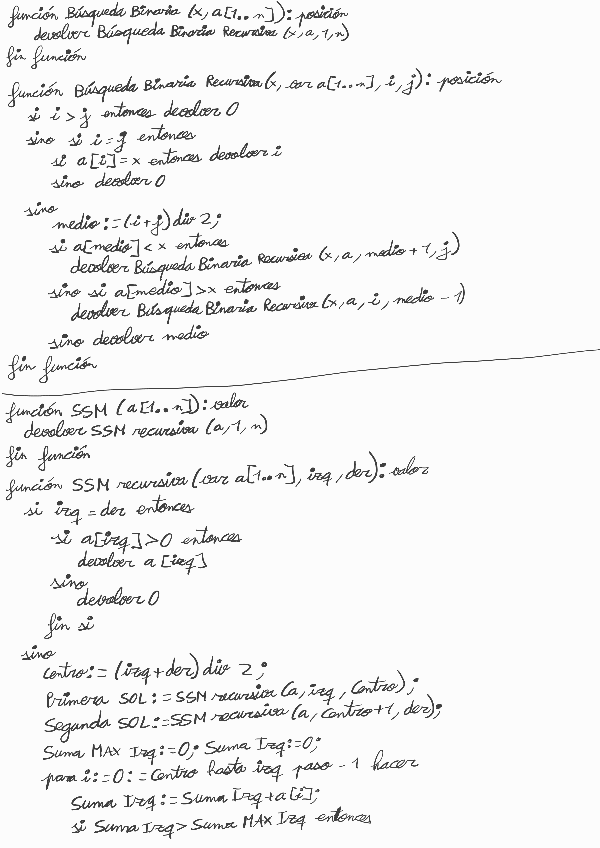 función Búsqueda Binaria (x, a[1..n]): posición
devolver Búsqueda Binaria Recursiva (x, a, 1, n)
fin función
función Búsqueda Binaria Recursiva (x, var a[1..n], i, j): posición
si i > j entonces devolver 0
sino si i = j entonces
si a[i] = x entonces devolver i
sino devolver 0
sino
medio := (i+j) div 2;
si a[medio] < x entonces
devolver Búsqueda Binaria Recursiva (x, a, medio + 1, j)
sino si a[medio] > x entonces
devolver Búsqueda Binaria Recursiva (x, a, i, medio - 1)
sino devolver medio
fin función
función SSM (a[1..n]): valor
devolver SSM recursiva (a, 1, n)
fin función
función SSM recursiva (var a[1..n], izq, der): valor
si izq = der entonces
si a[izq] > 0 entonces
devolver a [izq]
sino
devolver 0
fin si
sino
Centro := (izq + der) div 2;
Primera SOL := SSM recursiva (a, izq, Centro);
Segunda SOL := SSM recursiva (a, Centro+1, der);
Suma MAX Izq := 0; Suma Izq := 0;
para i := 0 : = Centro hasta izq paso - 1 hacer
Suma Izq := Suma Izq + a[i];
si Suma Izq > Suma MAX Izq entonces